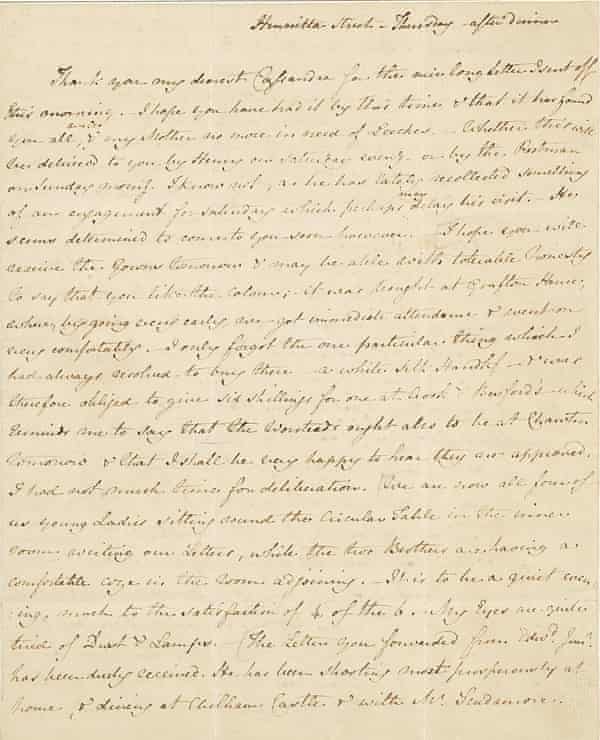 Henrietta Street - Thursday - after dinner
Thank you my dearest Cassandra for the nice long Letter I sent off
this morning. - I hope you have had it by this time & that it has found
you all well, & my Mother no more in need of Leeches. - Whether this will
be delivered to you by Henry on Saturday eveng or by the Postman
on Sunday morng I know not, as he has lately recollected something
of an engagement for Saturday, which perhaps may delay his visit. - He
seems determined to come to you soon however. - I hope you will
receive the Gown tomorrow & may be able with tolerable honesty
to say that you like the Colour; - it was bought at Grafton House,
where, by going very early, we got immediate attendance & went on
very comfortably. - I only forgot the one particular thing which I
had always resolved to buy there - a white silk Handkf - & was
therefore obliged to give six shillings for one at Crook & Besford's - which
reminds me to say that the Worsteads ought also to be at Chawton
tomorrow & that I shall be very happy to hear they are approved.
I had not much time for deliberation. We are now all four of
us young Ladies sitting round the Circular Table in the inner
room writing our Letters, while the two Brothers are having a
comfortable coze in the room adjoining. - It is to be a quiet even-
ing, much to the satisfaction of 4 of the 6. - My Eyes are quite
tired of Dust & Lamps. - The Letter you forwarded from Edwd Junr
has been duly received. He has been shooting most prosperously at
home, & dining at Chilham Castle & with Mr Scudamore.